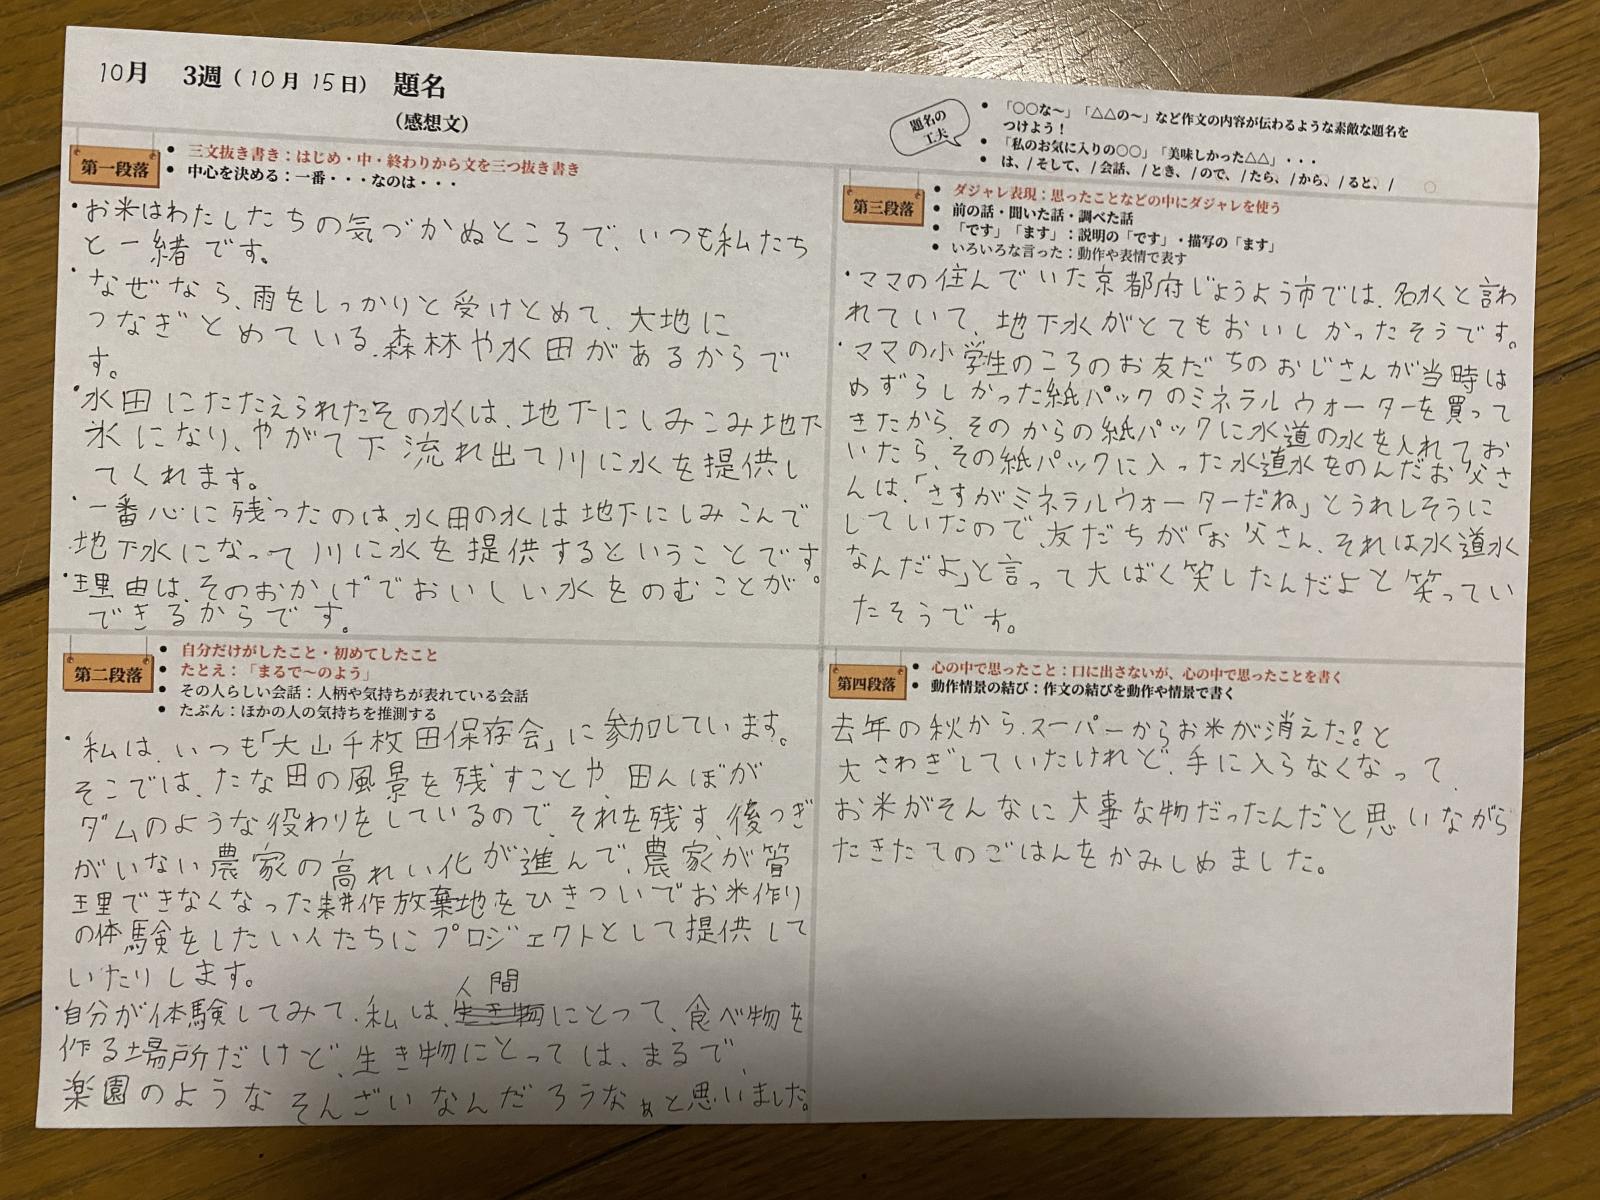 10月 3週（10月15日） 題名
（感想文）
題名の
工夫
• 「○○な～」「△△の～」など作文の内容が伝わるような素敵な題名を
つけよう！
• 「私のお気に入りの○○」「美味しかった△△」・・・
• は、/ そして、/ 会話、/ とき、/ ので、/ たら、/ から、/ ると、/ ○
第一段落
• 三文抜き書き：はじめ・中・終わりから文を三つ抜き書き
• 中心を決める：一番・・・なのは・・・
・お米はわたしたちの気づかぬところで、いつも私たち
と一緒です。
・なぜなら、雨をしっかりと受けとめて、大地に
つなぎとめている、森林や水田があるからで
す。
・水田にたたえられたその水は、地下にしみこみ地下
水になり、やがて下流れ出て川に水を提供し
てくれます。
・一番心に残ったのは、水田の水は地下にしみこんで
地下水になって川に水を提供するということです。
・理由は、そのおかげでおいしい水をのむことが
できるからです。
第二段落
• 自分だけがしたこと・初めてしたこと
• たとえ：「まるで～のよう」
• その人らしい会話：人柄や気持ちが表れている会話
• たぶん：ほかの人の気持ちを推測する
・私は、いつも「大山千枚田保存会」に参加しています。
そこでは、たな田の風景を残すことや、田んぼが
ダムのような役わりをしているので、それを残す、後つぎ
がいない農家の高れい化が進んで、農家が管
理できなくなった耕作放棄地をひきついでお米作り
の体験をしたい人たちにプロジェクトとして提供して
いたりします。
・自分が体験してみて、私は、人間にとって、食べ物を
作る場所だけど、生き物にとっては、まるで、
楽園のようなそんざいなんだろうなぁと思いました。
第三段落
• ダジャレ表現：思ったことなどの中にダジャレを使う
• 前の話・聞いた話・調べた話
• 「です」「ます」：説明の「です」・描写の「ます」
• いろいろな言った：動作や表情で表す
・ママの住んでいた京都府じょうよう市では、名水と言わ
れていて、地下水がとてもおいしかったそうです。
・ママの小学生のころのお友だちのおじさんが当時は
めずらしかった紙パックのミネラルウォーターを買って
きたから、そのからの紙パックに水道の水を入れてお
いたら、その紙パックに入った水道水をのんだお父さ
んは、「さすがミネラルウォーターだね」とうれしそうに
していたので、友だちが「お父さん、それは水道水
なんだよ」と言って大ばく笑したんだよと笑ってい
たそうです。
第四段落
• 心の中で思ったこと：口に出さないが、心の中で思ったことを書く
• 動作情景の結び：作文の結びを動作や情景で書く
去年の秋から、スーパーからお米が消えた！と
大さわぎしていたけれど、手に入らなくなって、
お米がそんなに大事な物だったんだと思いながら
たきたてのごはんをかみしめました。